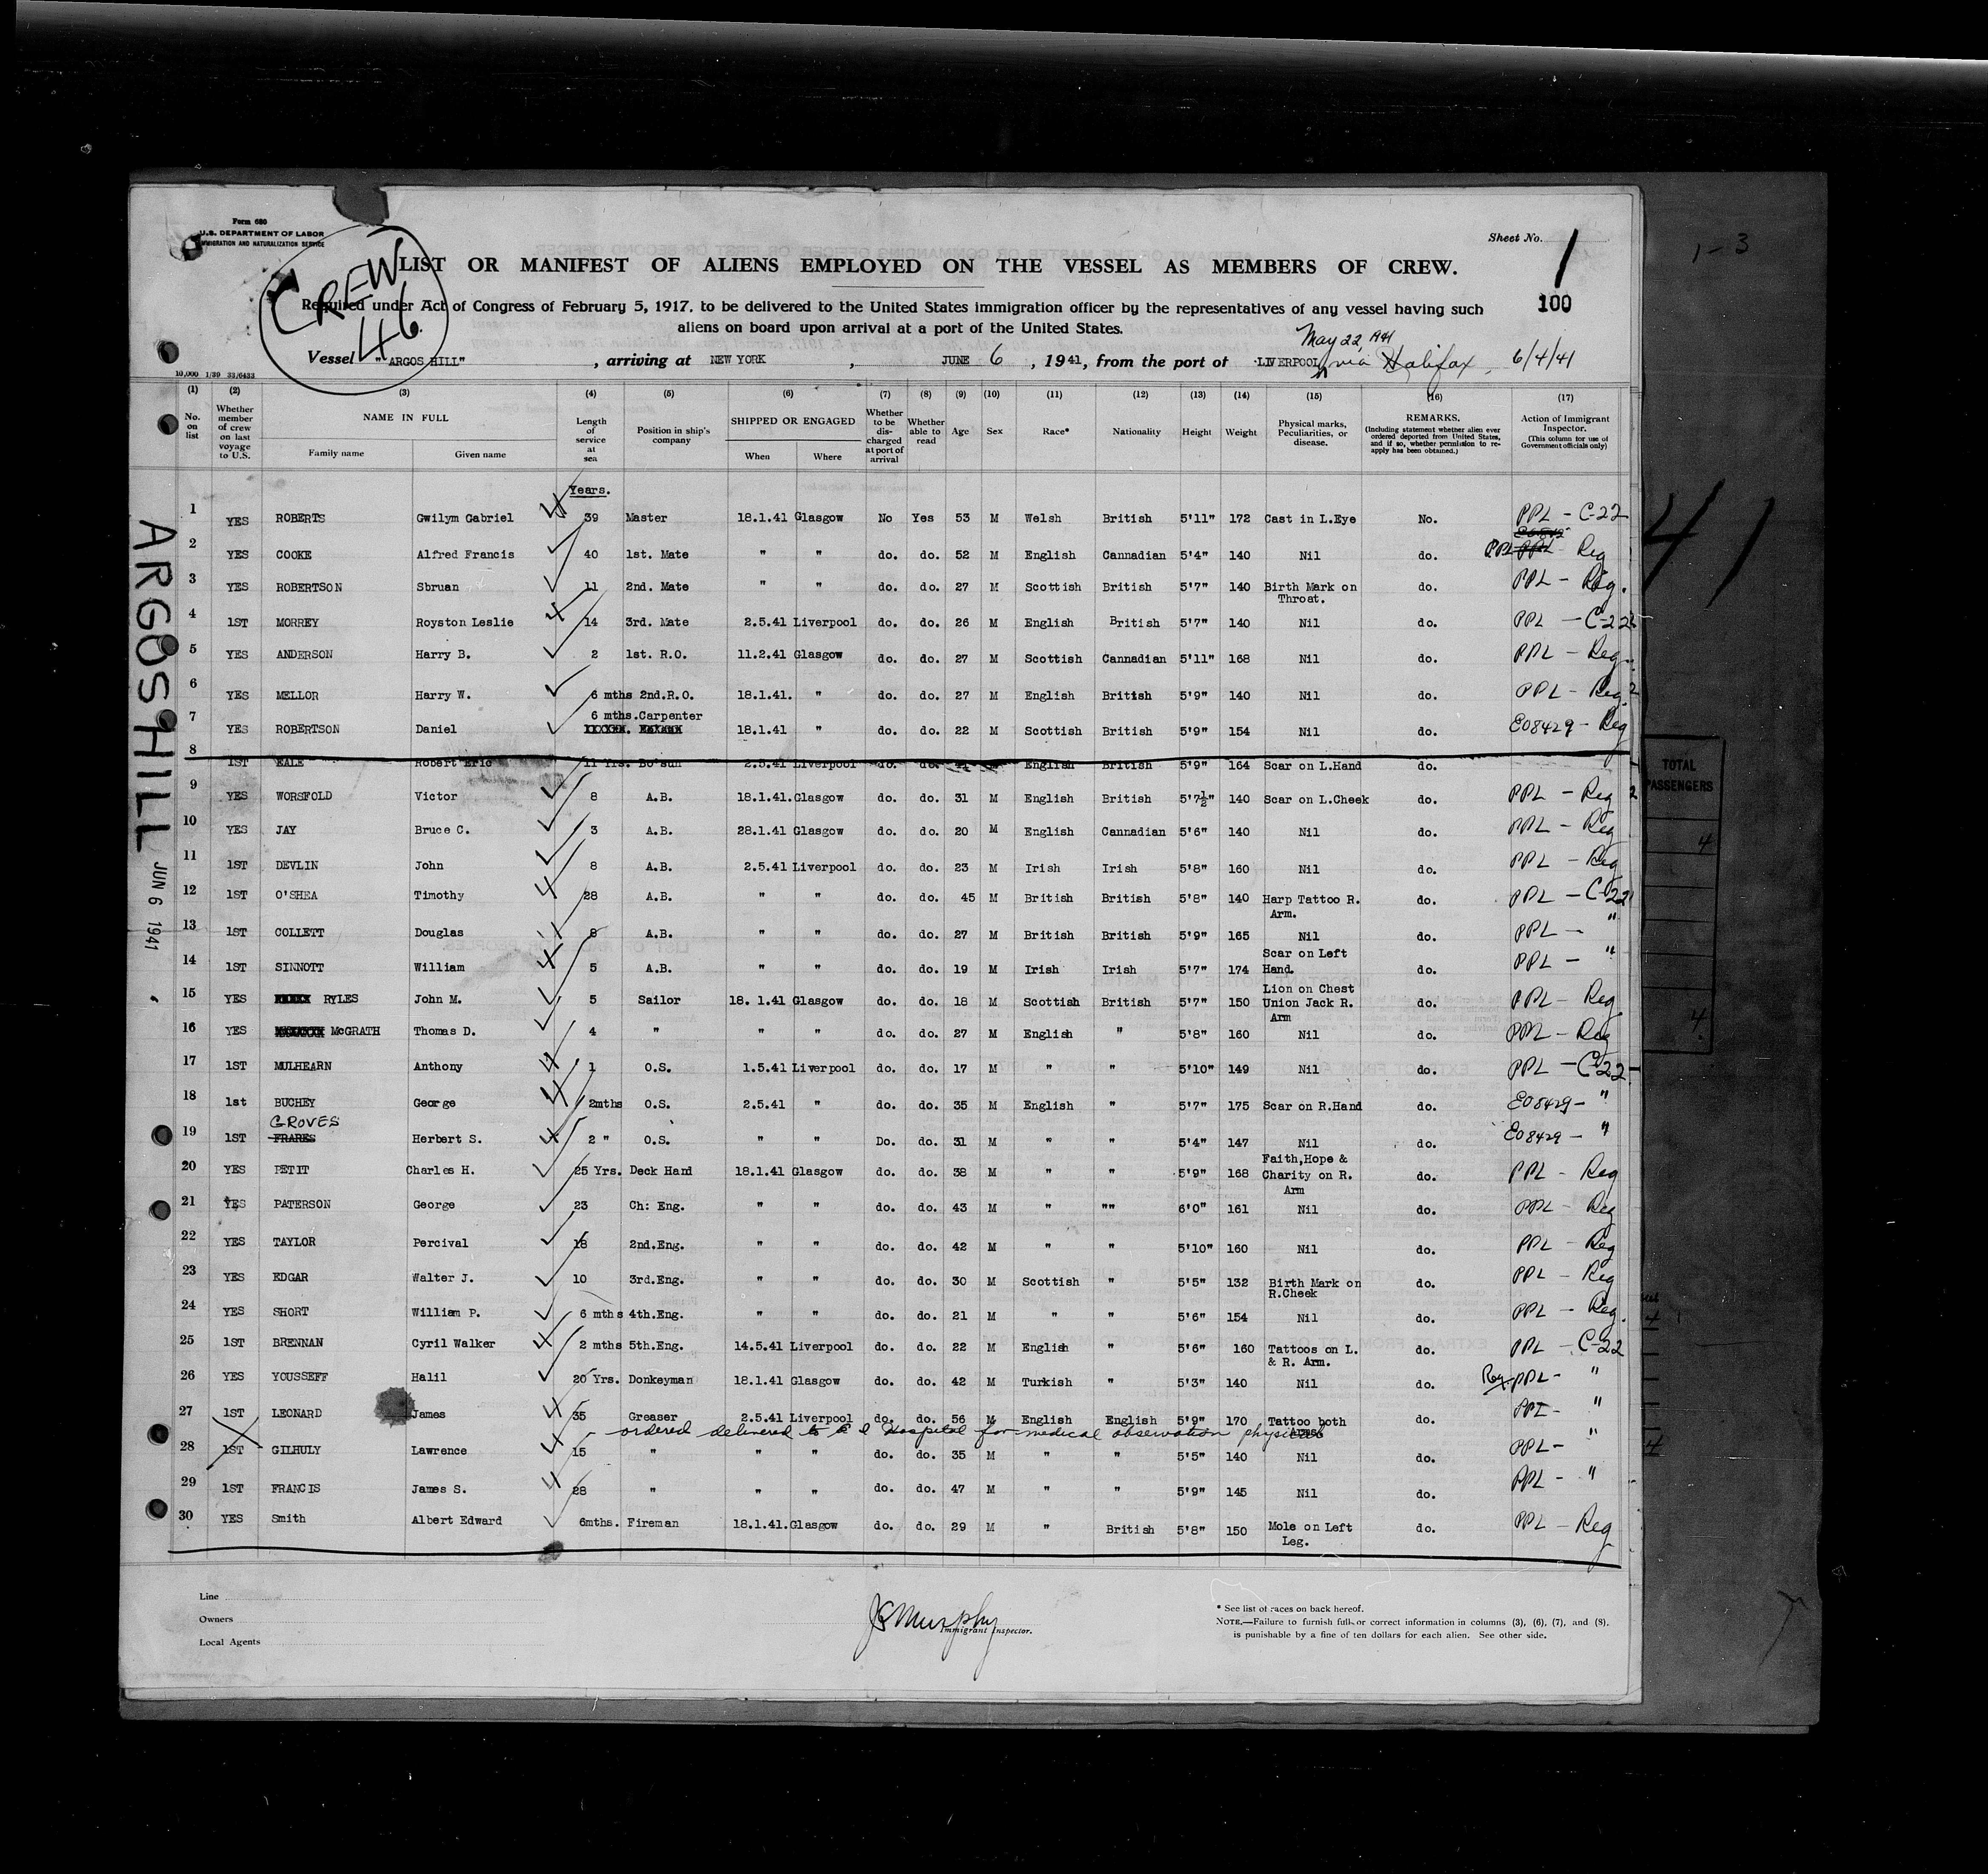 Form 680
U.S. DEPARTMENT OF LABOR
IMMIGRATION AND NATURALIZATION SERVICE
CREW 46
Sheet No. 1
1-3
LIST OR MANIFEST OF ALIENS EMPLOYED ON THE VESSEL AS MEMBERS OF CREW.
100
Required under Act of Congress of February 5, 1917, to be delivered to the United States immigration officer by the representatives of any vessel having such
aliens on board upon arrival at a port of the United States.
May 22, 1941
Vessel "ARGOS HILL", arriving at NEW YORK, JUNE 6, 1941, from the port of LIVERPOOL via Halifax, 6/4/41
10,000 1/39 33/6433
(1) (2) (3) (4) (5) (6) (7) (8) (9) (10) (11) (12) (13) (14) (15) (16) (17)
No. on list
Whether member of crew on last voyage to U.S.
NAME IN FULL
Family name Given name
Length of service at sea
Position in ship's company
SHIPPED OR ENGAGED
When Where
Whether to be discharged at port of arrival
Whether able to read
Age Sex Race* Nationality Height Weight
Physical marks, Peculiarities, or disease.
REMARKS, (Including statement whether alien ever ordered deported from United States, and if so, whether permission to reapply has been obtained.)
Action of Immigrant Inspector. (This column for use of Government officials only)
Years.
1 YES ROBERTS Gwilym Gabriel 39 Master 18.1.41 Glasgow No Yes 53 M Welsh British 5'11" 172 Cast in L.Eye No. PPL - C-22
2 YES COOKE Alfred Francis 40 1st. Mate " " do. do. 52 M English Cannadian 5'4" 140 Nil do. PPL - Reg
3 YES ROBERTSON Sbruan 11 2nd. Mate " " do. do. 27 M Scottish British 5'7" 140 Birth Mark on Throat. do. PPL - Reg.
4 1ST MORREY Royston Leslie 14 3rd. Mate 2.5.41 Liverpool do. do. 26 M English British 5'7" 140 Nil do. PPL - C-22
5 YES ANDERSON Harry B. 2 1st. R.O. 11.2.41 Glasgow do. do. 27 M Scottish Cannadian 5'11" 168 Nil do. PPL - Reg.
6 YES MELLOR Harry W. 6 mths 2nd.R.O. 18.1.41. " do. do. 27 M English British 5'9" 140 Nil do. PPL - Reg
7 YES ROBERTSON Daniel 6 mths. Carpenter 18.1.41 " do. do. 22 M Scottish British 5'9" 154 Nil do. E08429 - Reg
8 1ST EALE Robert Eric 11 Yrs. Bo'sun 2.5.41 Liverpool do. do. 41 M English British 5'9" 164 Scar on L.Hand do.
9 YES WORSFOLD Victor 8 A.B. 18.1.41. Glasgow do. do. 31 M English British 5'7½" 140 Scar on L.Cheek do. PPL - Reg
10 YES JAY Bruce C. 3 A.B. 28.1.41 Glasgow do. do. 20 M English Cannadian 5'6" 140 Nil do. PPL - Reg
11 1ST DEVLIN John 8 A.B. 2.5.41 Liverpool do. do. 23 M Irish Irish 5'8" 160 Nil do. PPL - Reg
12 1ST O'SHEA Timothy 28 A.B. " " do. do. 45 M British British 5'8" 140 Harp Tattoo R. Arm. do. PPL - C-22
13 1ST COLLETT Douglas 8 A.B. " " do. do. 27 M British British 5'9" 165 Nil do. PPL - "
14 1ST SINNOTT William 5 A.B. " " do. do. 19 M Irish Irish 5'7" 174 Scar on Left Hand. do. PPL - "
15 YES RYLES John M. 5 Sailor 18. 1.41 Glasgow do. do. 18 M Scottish British 5'7" 150 Lion on Chest Union Jack R. Arm do. PPL - Reg
16 YES McGRATH Thomas D. 4 " " " do. do. 27 M English " 5'8" 160 Nil do. PPL - Reg
17 1ST MULHEARN Anthony 1 O.S. 1.5.41 Liverpool do. do. 17 M " " 5'10" 149 Nil do. PPL - C-22
18 1st BUCHEY George 2mths O.S. 2.5.41 " do. do. 35 M English " 5'7" 175 Scar on R.Hand do. E08429 - "
19 1ST GROVES FRARES Herbert S. 2 " O.S. " " Do. do. 31 M " " 5'4" 147 Nil do. E08429 - "
20 YES PETIT Charles H. 25 Yrs. Deck Hand 18.1.41 Glasgow do. do. 38 M " " 5'9" 168 Faith,Hope & Charity on R. Arm do. PPL - Reg
21 YES PATERSON George 23 Ch: Eng. " " do. do. 43 M " "" 6'0" 161 Nil do. PPL - Reg
22 YES TAYLOR Percival 18 2nd.Eng. " " do. do. 42 M " " 5'10" 160 Nil do. PPL - Reg
23 YES EDGAR Walter J. 10 3rd.Eng. " " do. do. 30 M Scottish " 5'5" 132 Birth Mark on R.Cheek do. PPL - Reg
24 YES SHORT William P. 6 mths 4th.Eng. " " do. do. 21 M " " 5'6" 154 Nil do. PPL - Reg.
25 1ST BRENNAN Cyril Walker 2 mths 5th.Eng. 14.5.41 Liverpool do. do. 22 M English " 5'6" 160 Tattoos on L. & R. Arm. do. PPL - C-22
26 YES YOUSSEFF Halil 20 Yrs. Donkeyman 18.1.41 Glasgow do. do. 42 M Turkish " 5'3" 140 Nil do. Reg. PPL - "
27 1ST LEONARD James 35 Greaser 2.5.41 Liverpool do. do. 56 M English English 5'9" 170 Tattoo both Arms. do. PPL - "
ordered delivered to E I Hospital for medical observation physical
28 1ST GILHULY Lawrence 15 " " " do. do. 35 M " " 5'5" 140 Nil do. PPL - "
29 1ST FRANCIS James S. 28 " " " do. do. 47 M " " 5'9" 145 Nil do. PPL - "
30 YES Smith Albert Edward 6mths. Fireman 18.1.41. Glasgow do. do. 29 M " British 5'8" 150 Mole on Left Leg. do. PPL - Reg
ARGOS HILL
JUN 6 1941
41
TOTAL PASSENGERS
4
4
Line
Owners
Local Agents
JS Murphy
Immigrant Inspector.
* See list of races on back hereof.
NOTE.—Failure to furnish full or correct information in columns (3), (6), (7), and (8),
is punishable by a fine of ten dollars for each alien. See other side.